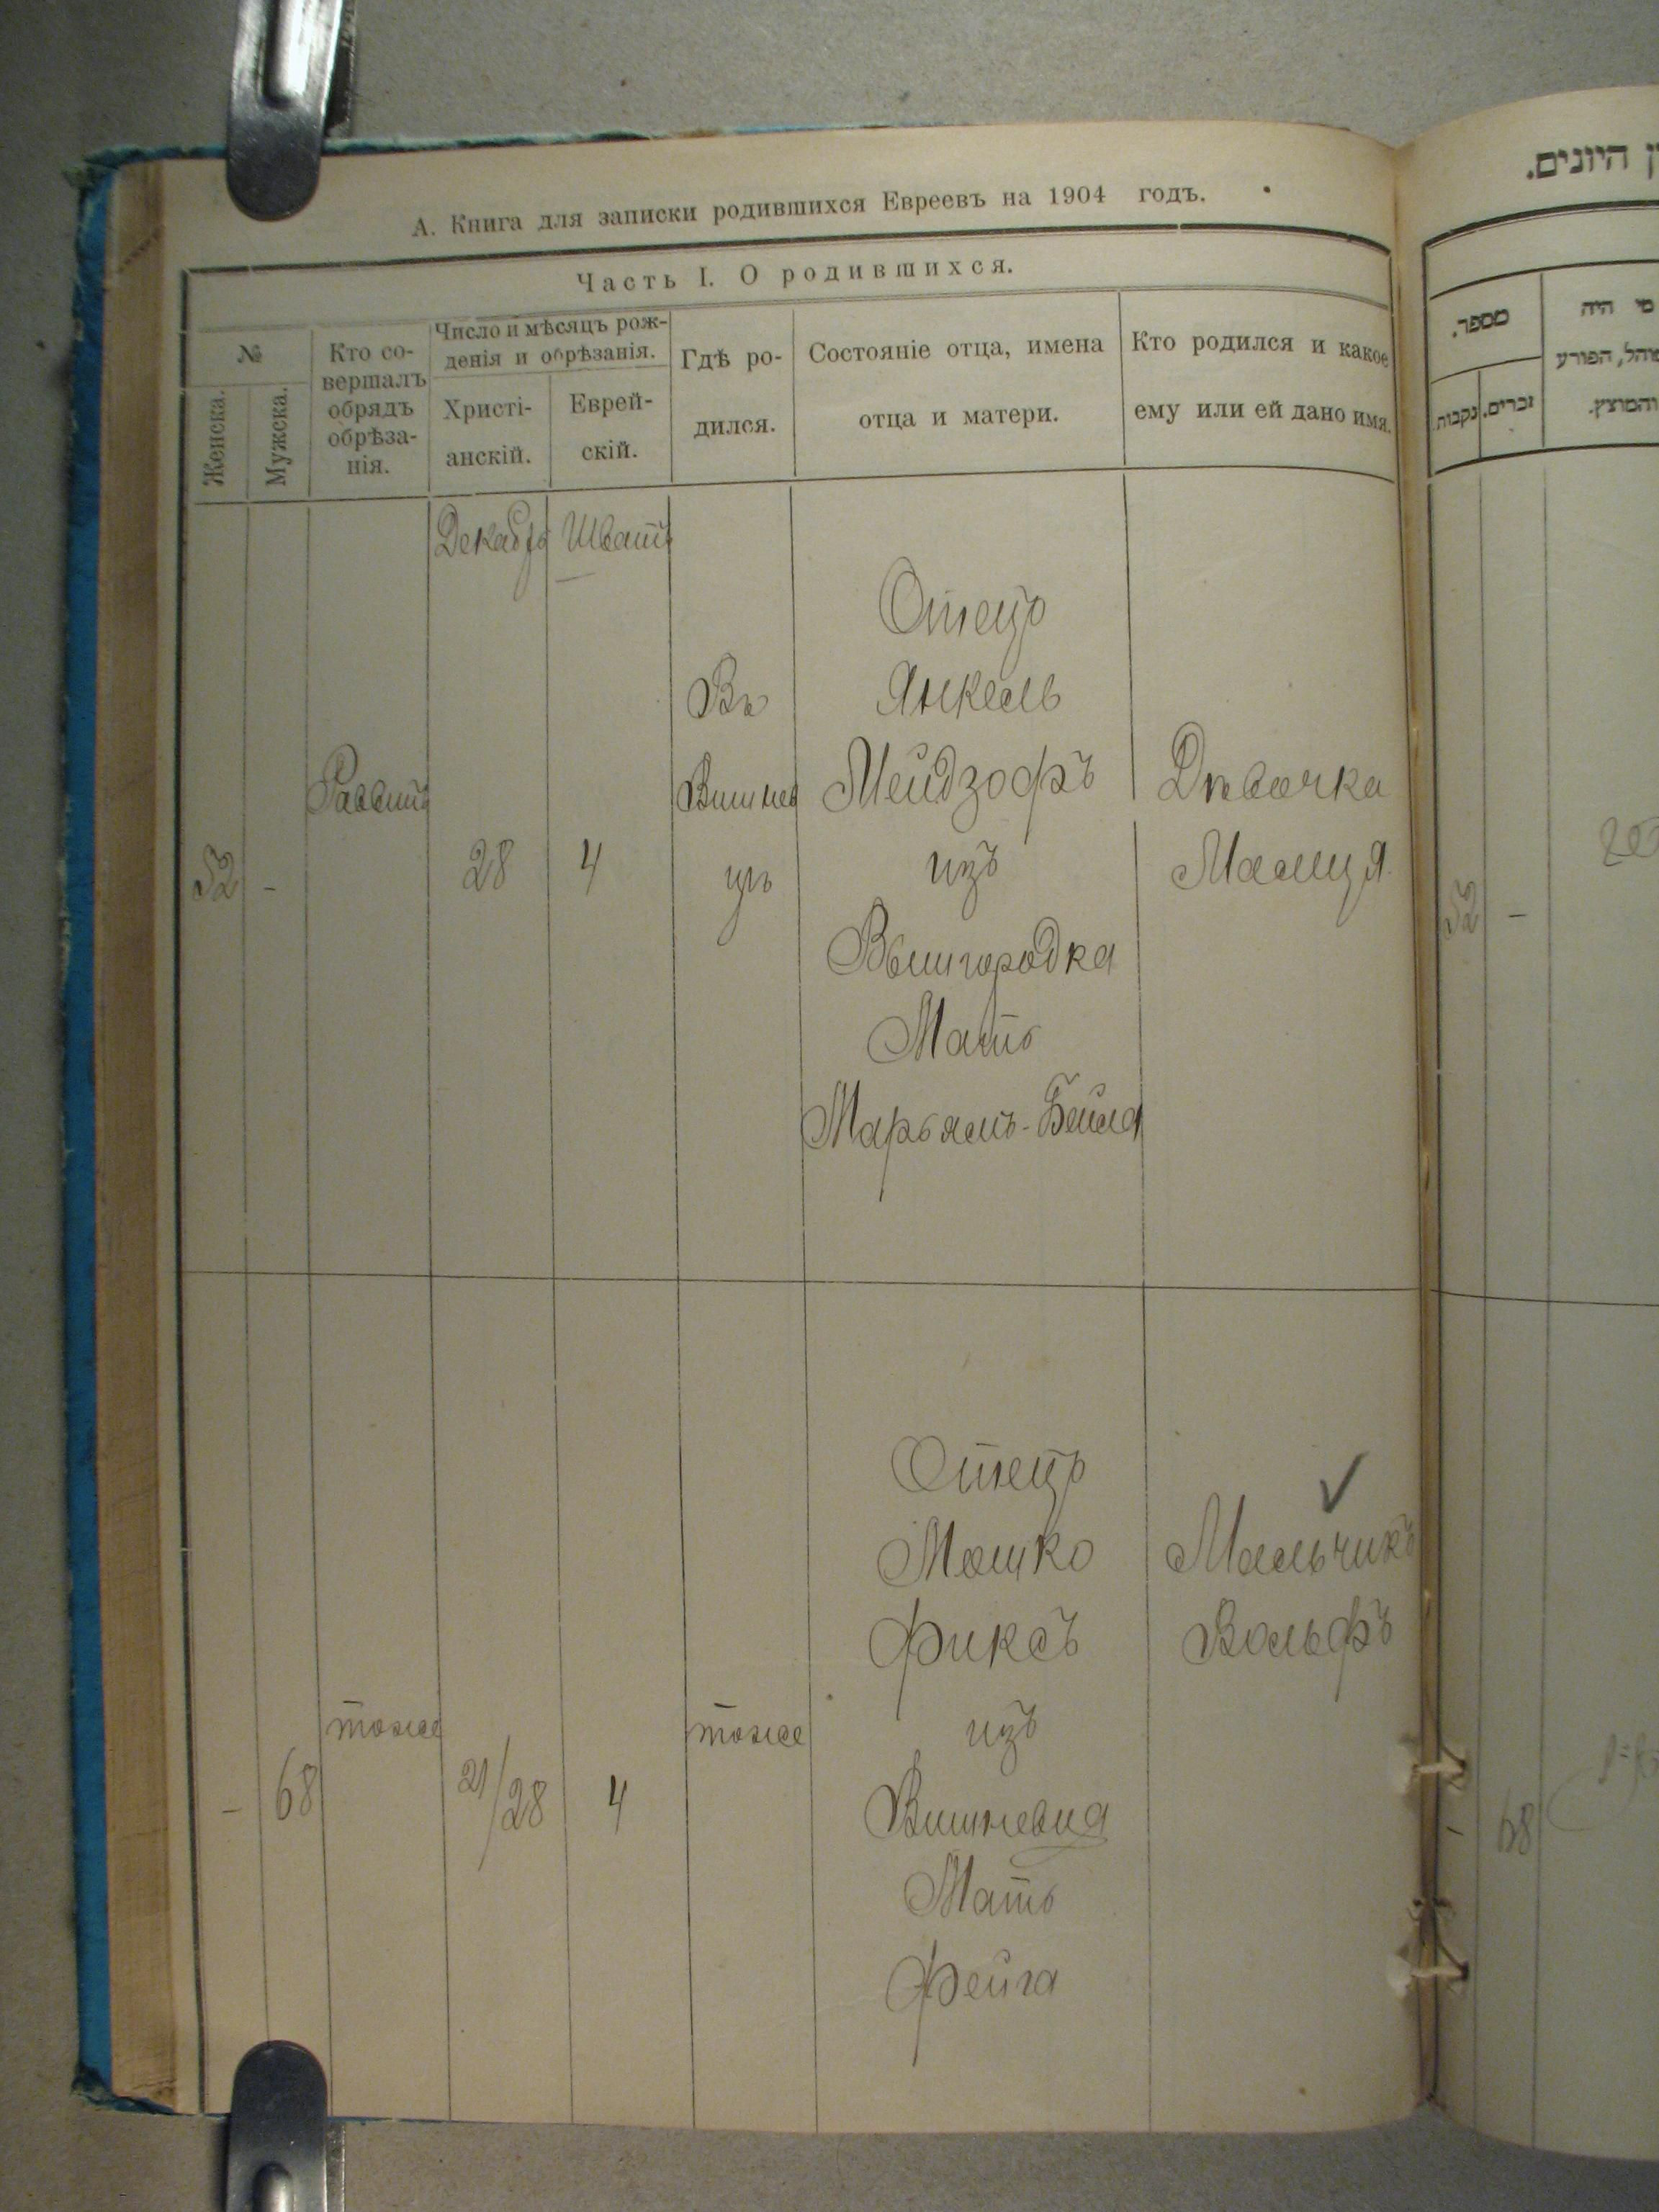 А. Книга для записки родившихся Евреевъ на 1904 годъ.
Часть I. О родившихся.
№
Женска.
Мужска.
Кто со-
вершалъ
обрядъ
обрѣза-
нія.
Число и мѣсяцъ рож-
денія и обрѣзанія.
Христі-
анскій.
Еврей-
скій.
Гдѣ ро-
дился.
Состояніе отца, имена
отца и матери.
Кто родился и какое
ему или ей дано имя.
Декабрь
Шватъ
52
-
Раввинъ
28
4
Въ
Вишнев
цѣ
Отецъ
Янкель
Мейдзофъ
изъ
Вышгородка
Мать
Марьямъ-Бейла
Дѣвочка
Маляця
-
68
тоже
21/28
4
тоже
Отецъ
Мошко
Фиксъ
изъ
Вишневца
Мать
Фейга
Мальчикъ
Вольфъ
היונים.
מספר.
נקבות.
זכרים.
מי היה
המוהל, הפורע
והמוצץ.
52
-
-
68